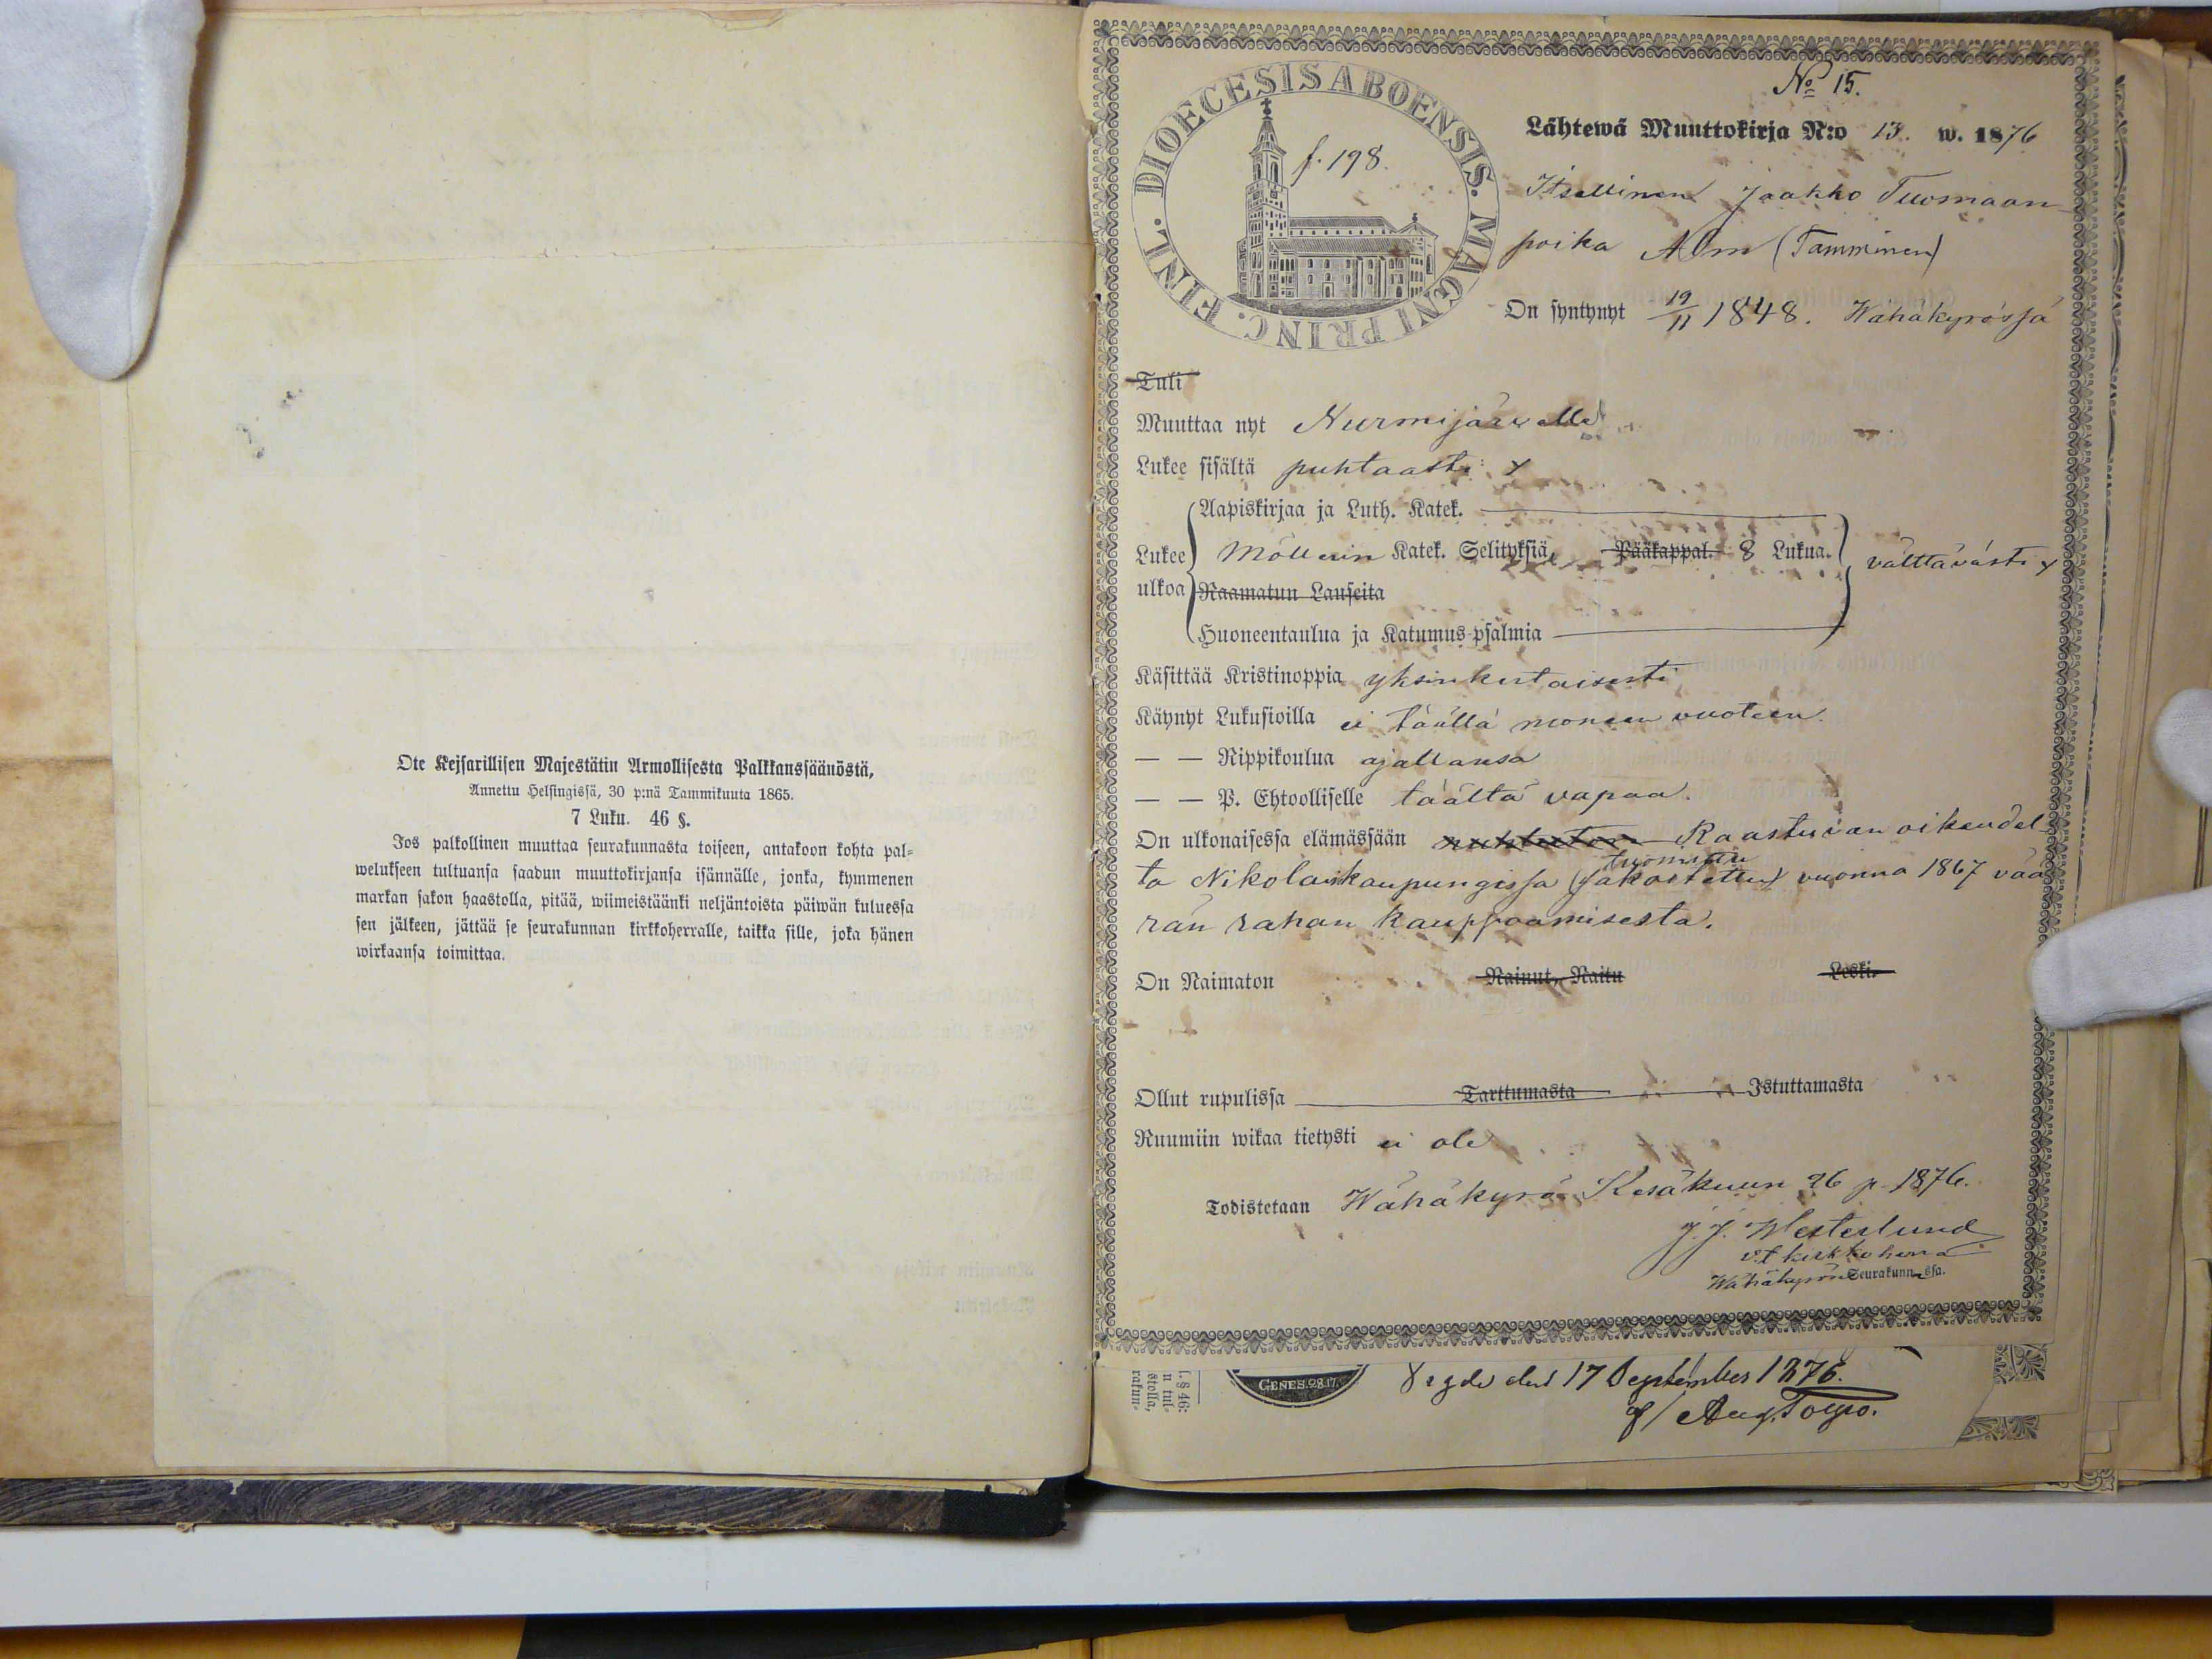 Ote Keisarillisen Majestätin Armollisesta Palkkanssäänöstä,
Annettu Helsingissä, 30 p:nä Tammikuuta 1865.
7 Luku. 46 §.
Jos palkollinen muuttaa seurakunnasta toiseen, antakoon kohta pal-
welukseen tultuansa saadun muuttokirjansa isännälle, jonka, kymmenen
markan sakon haastolla, pitää, wiimeistäänki neljäntoista päiwän kuluessa
sen jälkeen, jättää se seurakunnan kirkkoherralle, taikka sille, joka hänen
wirkaansa toimittaa.
DIOECESIS ABOENSIS. MAGNI PRINC. FINL.
f. 198.
No 15.
Lähtewä Muuttokirja N:o 13. w. 1876
Itsellinen Jaakko Tuomaan-
poika Alm (Tamminen)
On syntynyt 19/11 1848. Wähäkyrössä
Tuli
Muuttaa nyt Nurmijärvelle
Lukee sisältä puhtaasti
Aapiskirjaa ja Luth. Katek.
Lukee ulkoa Möllerin Katek. Selityksiä, Pääkappal. 8 Lukua. välttävästi
Raamatun Lauseita
Huoneentaulua ja Katumus-psalmia
Käsittää Kristinoppia yksinkertaisesti
Käynyt Lukusioilla ei täällä moneen vuoteen.
— — Rippikoulua ajallansa
— — P. Ehtoolliselle täältä vapaa.
On ulkonaisessa elämässään nuhteeton Raastuvan oikeudel-
ta Nikolainkaupungissa (sakoitettu) tuomittu vuonna 1867 vää
rän rahan kauppaamisesta.
On Naimaton Nainut, Naitu Leski.
Ollut rupulissa Tarttumasta Istuttamasta
Ruumiin wikaa tietysti ei ole
Todistetaan Wähäkyrö Kesäkuun 26 p. 1876.
J. J. Westerlund
v.t. kirkkoherra
Wähäkyrön Seurakunnassa.
l. § 46:
n tul-
stolla,
rakun-
GENES. 28.17.
den 17 September 1876.
af Aug.